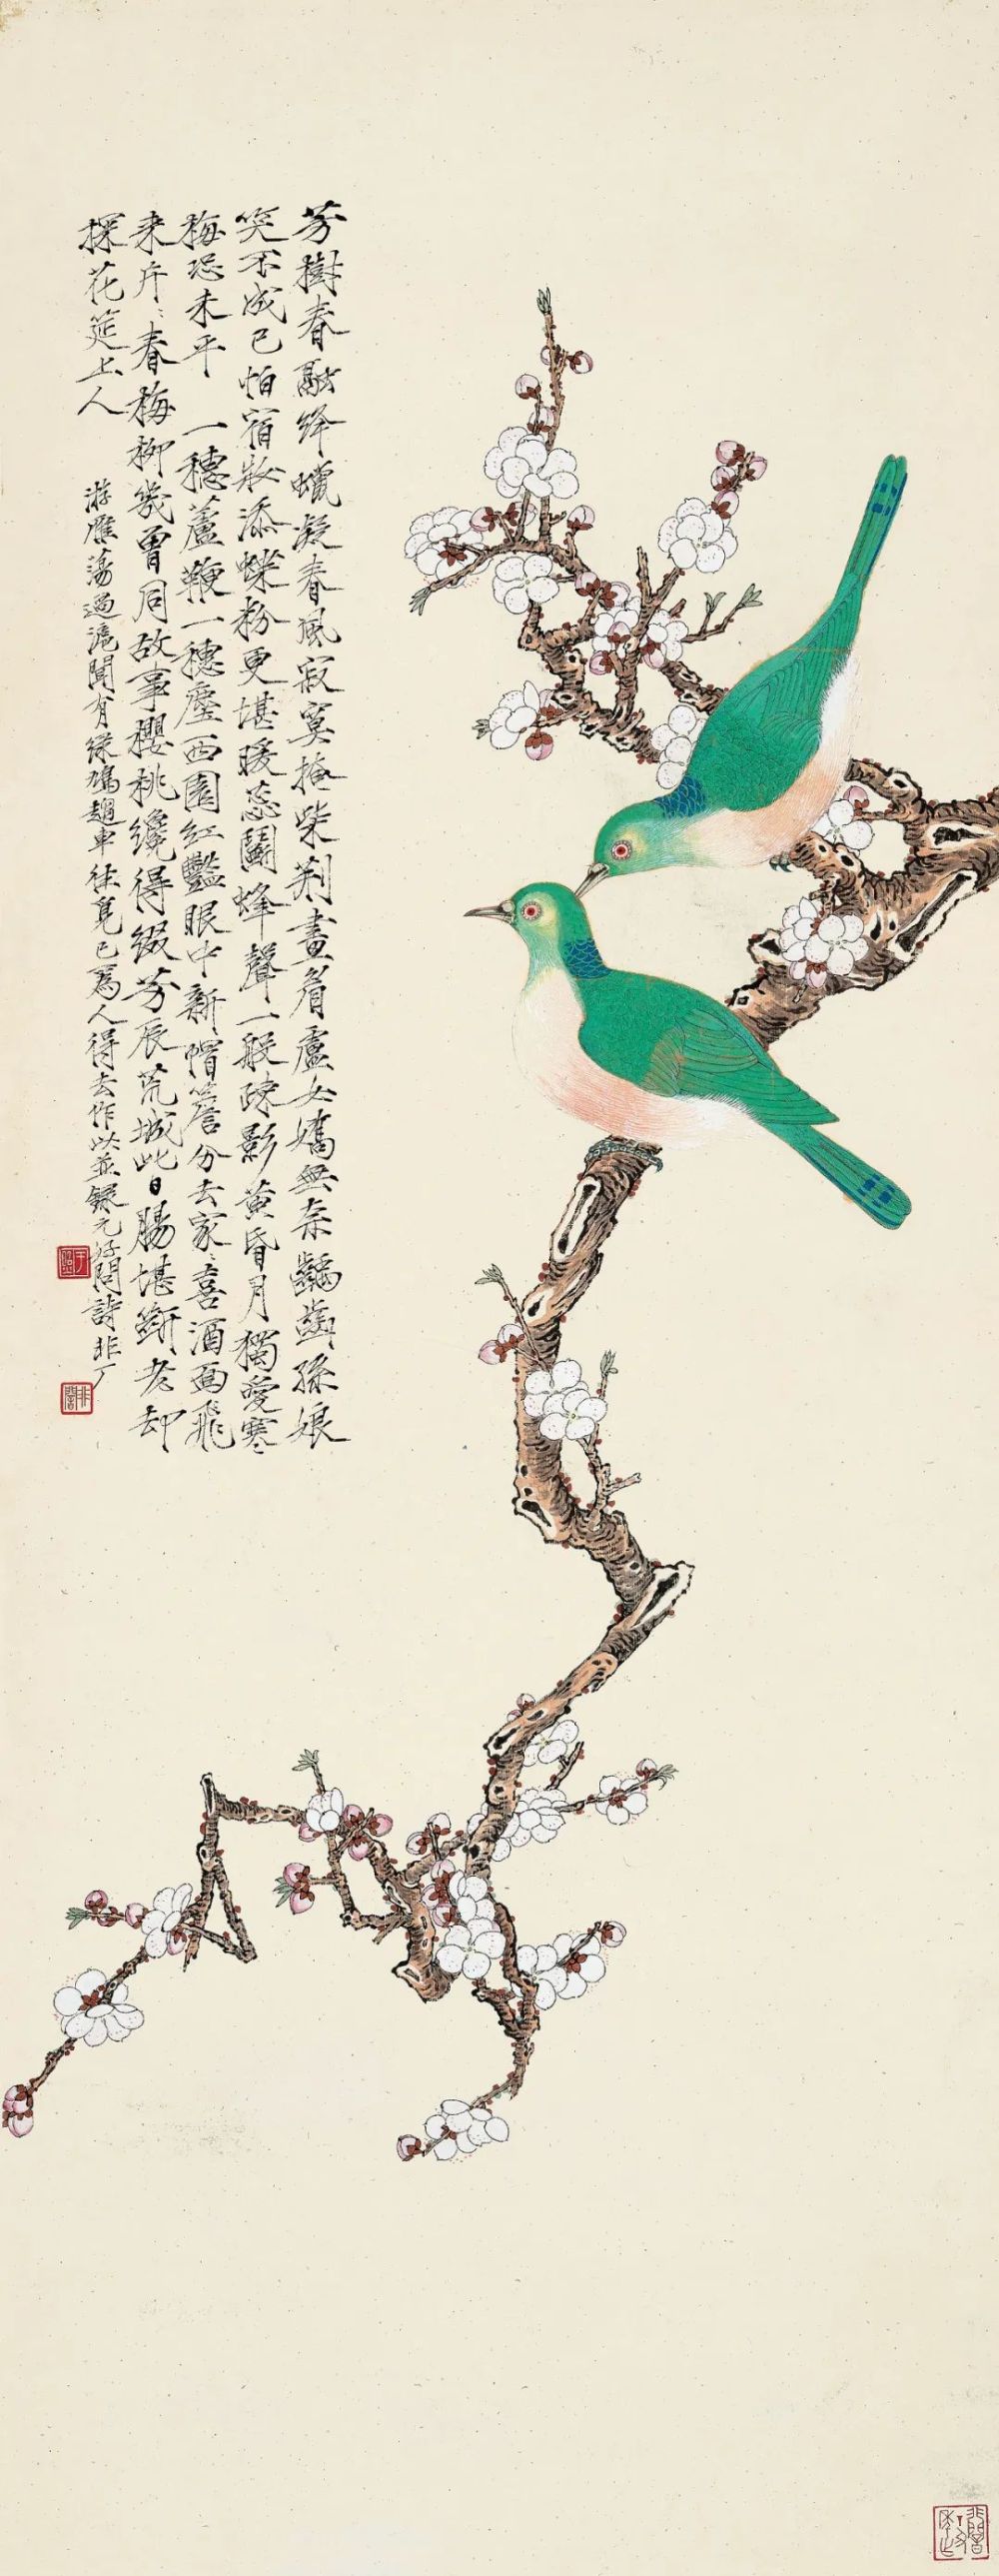 芳樹春融絳蠟凝春風寂寞掩柴荆畫眉盧女嬌無奈齲齒孫娘
笑不成已怕宿妝添蝶粉更堪暖蕊鬧蜂聲一般疎影黄昏月獨愛寒
梅恐未平 一穗蘆鞭一穗塵西園紅豔眼中新帽簷分去家家喜酒面飛
来片片春梅柳幾曾同故事櫻桃纔得綴芳辰荒城此日腸堪斷老却
探花筵上人
游雁蕩過滬聞有緑鳩趨車往覓已爲人得去作此並録元好問詩非厂